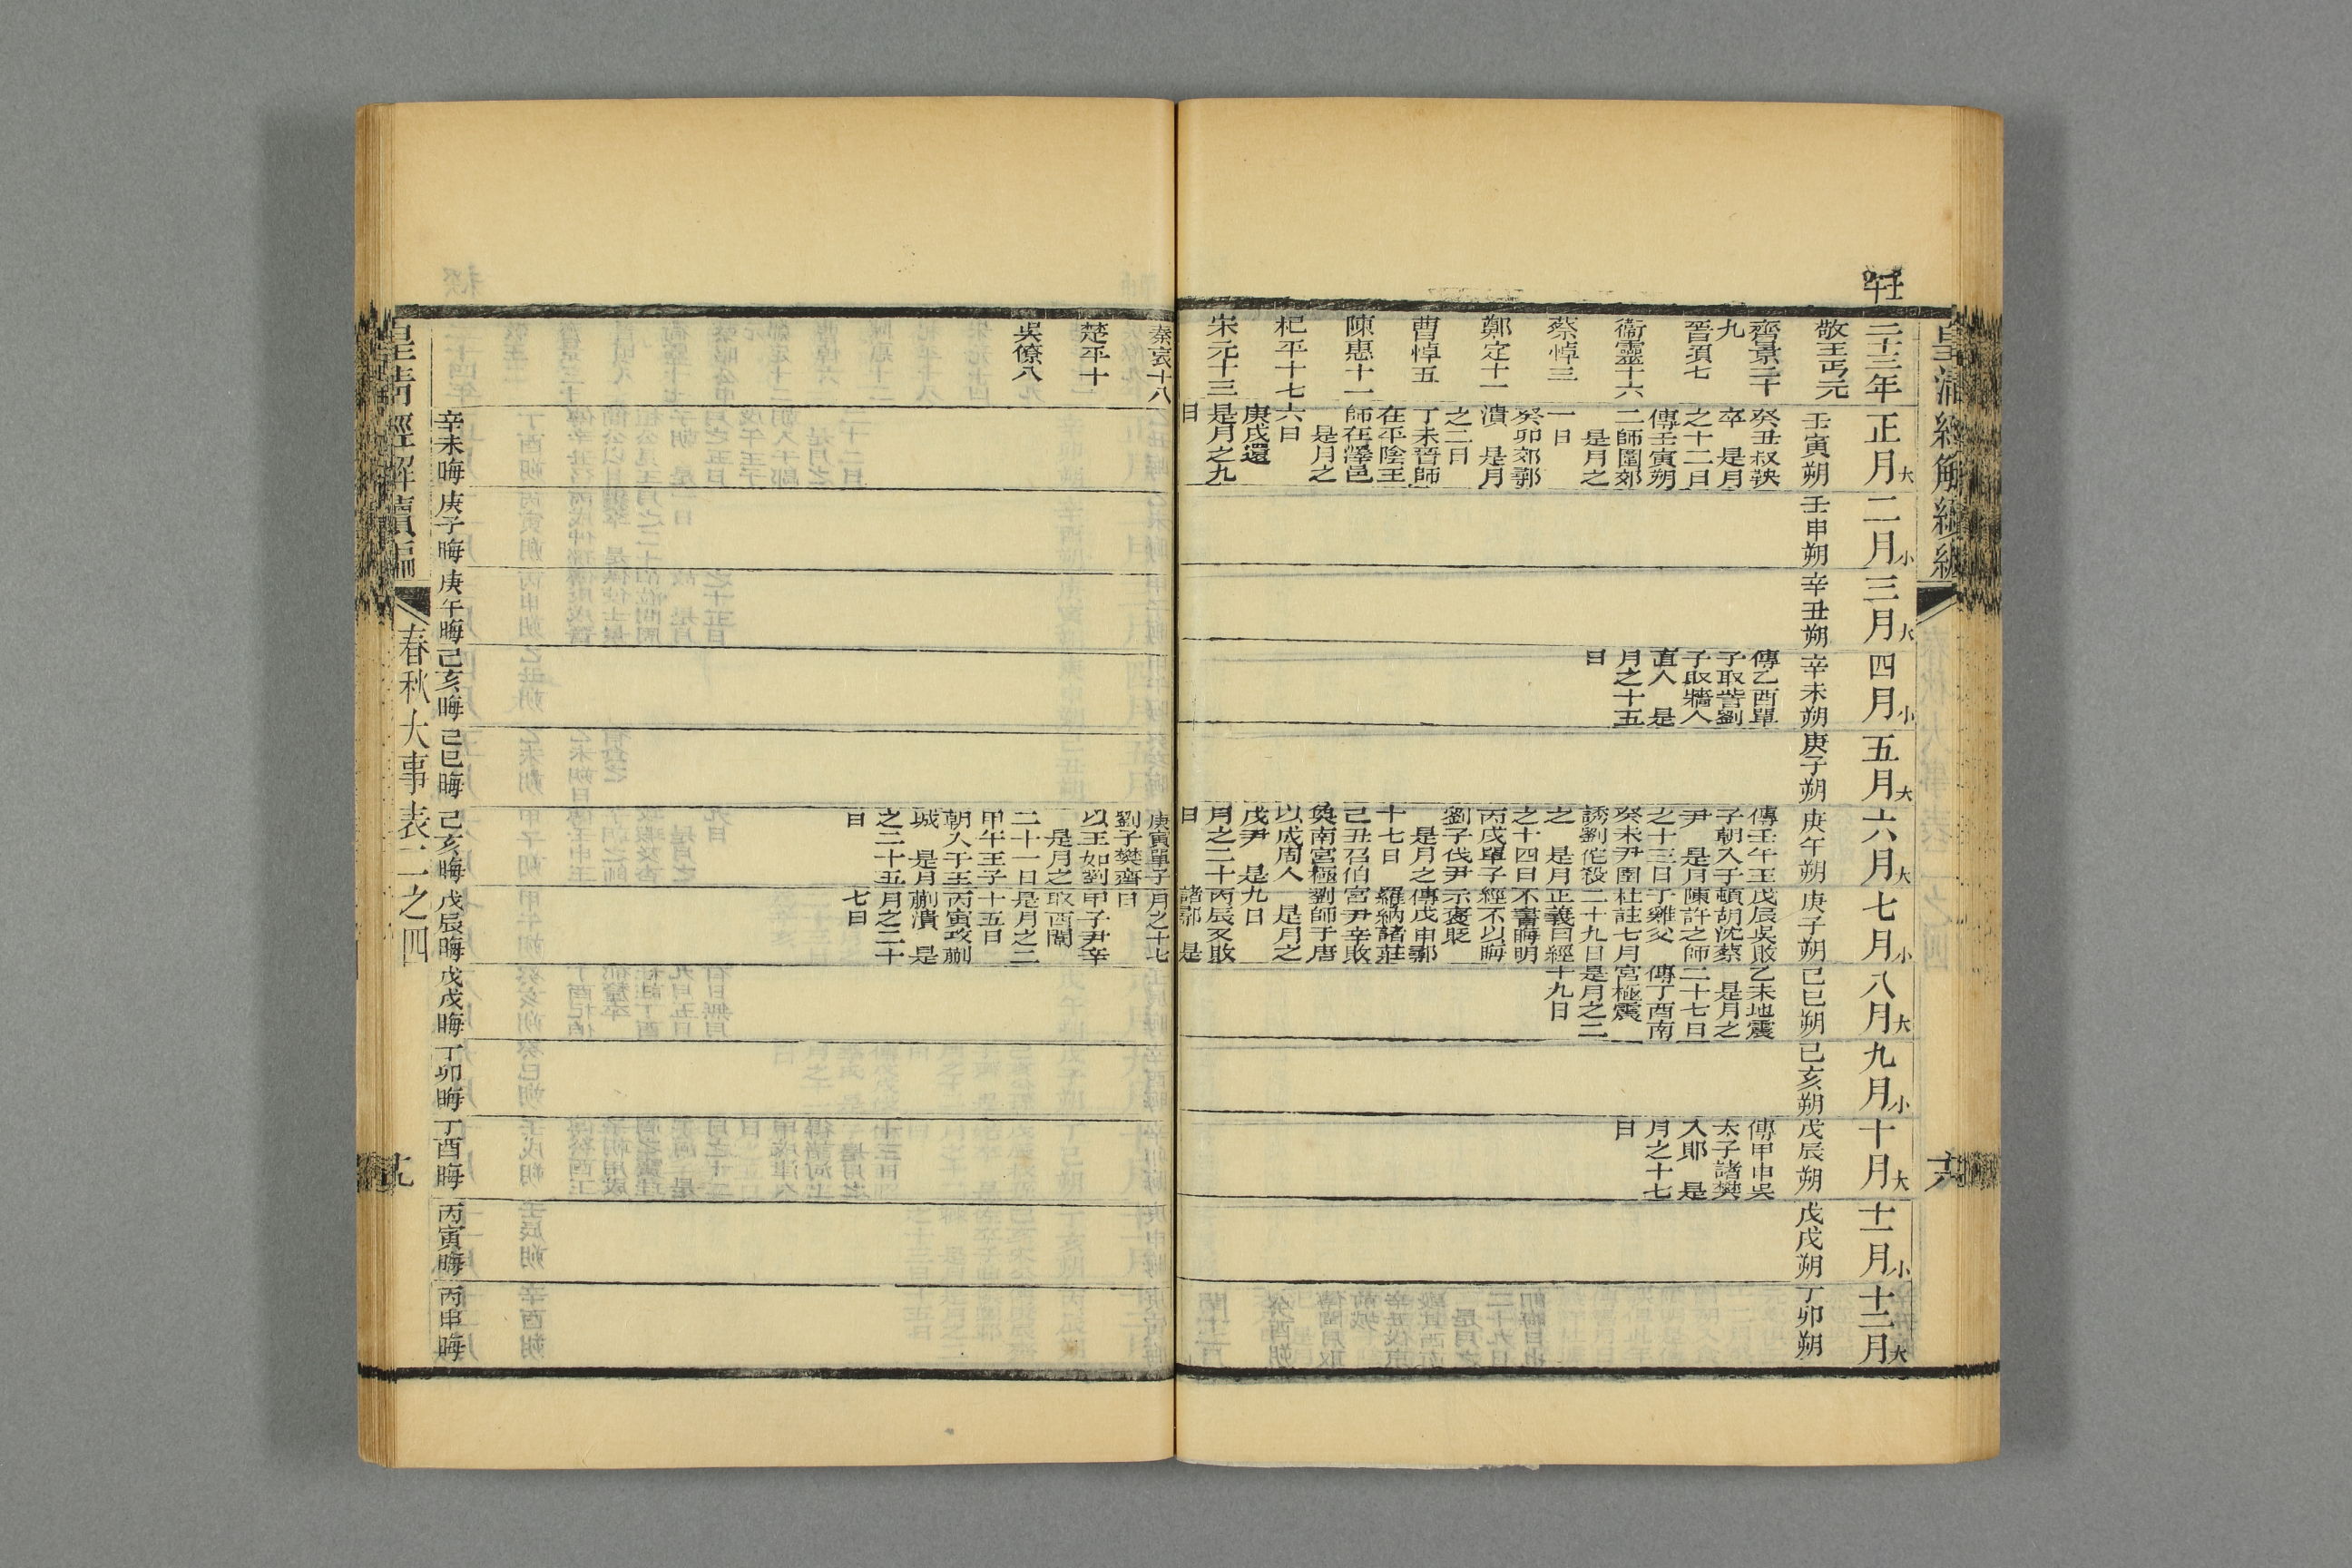 皇清經解續編
六
壬午
二十三年
敬王丐元
齊景二十
九
晉頃七
衞靈十六
蔡悼三
鄭定十一
曹悼五
陳惠十一
杞平十七
宋元十三
秦哀十八
楚平十
吳僚八
正月大
壬寅朔
癸丑叔鞅
卒　是月
之十二日
傳壬寅朔
二師圍郊
是月之
一日
癸卯郊鄩
潰　是月
之二日
丁未晉師
在平陰王
師在澤邑
是月之
六日
庚戌還
是月之九
日
辛未晦
二月小
壬申朔
庚子晦
三月大
辛丑朔
庚午晦
四月小
辛未朔
傳乙酉單
子取訾劉
子取牆人
直人　是
月之十五
日
己亥晦
五月大
庚子朔
己巳晦
六月大
庚午朔
傳壬午王
子朝入于
尹　是月
之十三日
癸未尹圉
誘劉佗殺
之　是月
之十四日
丙戌單子
劉子伐尹
是月之
十七日
己丑召伯
奐南宮極
以成周人
戊尹　是
月之二十
日
庚寅單子
劉子樊齊
以王如劉
是月之
二十一日
甲午王子
朝入于王
城　是月
之二十五
日
己亥晦
七月小
庚子朔
戊辰吳敗
頓胡沈蔡
陳許之師
于雞父
杜註七月
二十九日
正義曰經
不書晦明
經不以晦
示褒貶
傳戊申鄩
羅納諸莊
宮尹辛敗
劉師于唐
是月之
九日
丙辰又敗
諸鄩　是
月之十七
日
甲子尹辛
取西闈
是月之二
十五日
丙寅攻蒯
蒯潰　是
月之二十
七日
戊辰晦
八月大
己巳朔
乙未地震
是月之
二十七日
傳丁酉南
宮極震
是月之二
十九日
戊戌晦
九月小
己亥朔
丁卯晦
十月大
戊辰朔
傳甲申吳
太子諸樊
入郹　是
月之十七
日
丁酉晦
十一月小
戊戌朔
丙寅晦
十二月大
丁卯朔
丙申晦
皇清經解續編
春秋大事表二之四